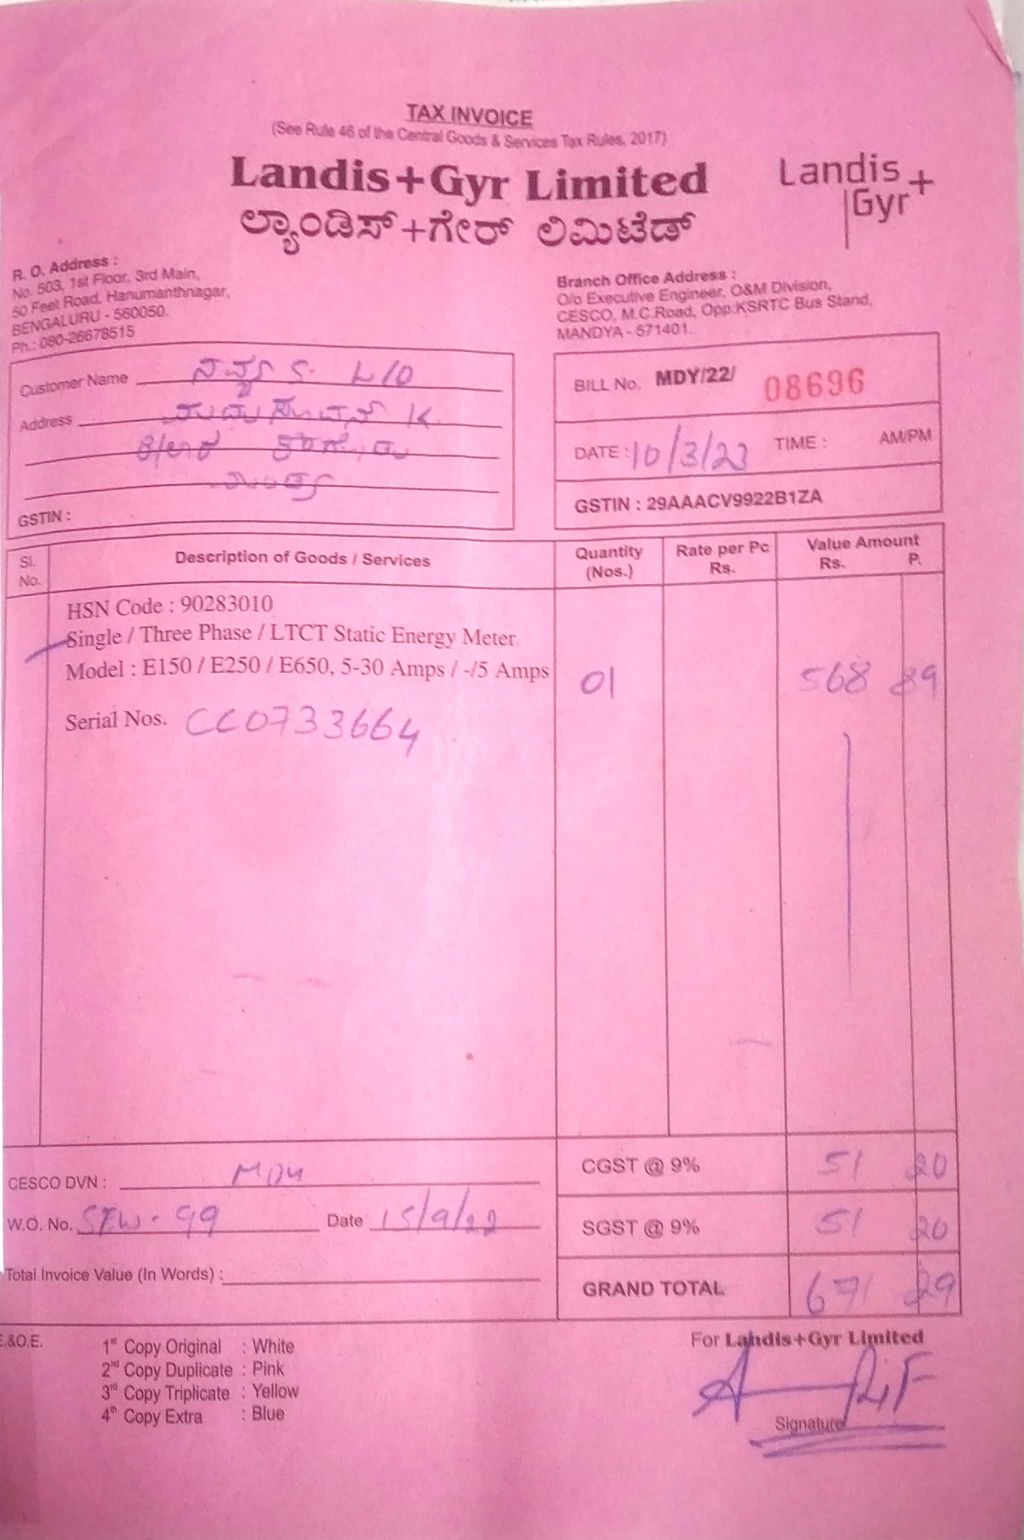 TAX INVOICE
(See Rule 46 of the Central Goods & Services Tax Rules, 2017)
Landis+Gyr Limited
ಲ್ಯಾಂಡಿಸ್+ಗೇರ್ ಲಿಮಿಟೆಡ್
Landis+
Gyr
R. O. Address :
No. 503, 1st Floor, 3rd Main,
50 Feet Road, Hanumanthnagar,
BENGALURU - 560050.
Ph.: 080-26678515
Branch Office Address :
O/o Executive Engineer, O&M Division,
CESCO, M.C.Road, Opp.KSRTC Bus Stand,
MANDYA - 571401.
Customer Name
Address K
GSTIN :
BILL No. MDY/22/ 08696
DATE : 10/3/23 TIME : AM/PM
GSTIN : 29AAACV9922B1ZA
Sl. No. Description of Goods / Services Quantity (Nos.) Rate per Pc Rs. Value Amount Rs. P.
HSN Code : 90283010
Single / Three Phase / LTCT Static Energy Meter
Model : E150 / E250 / E650, 5-30 Amps / -/5 Amps 01 568 89
Serial Nos. CC0733664
CESCO DVN :
CGST @ 9% 51 20
W.O. No. Date 15/9/22
SGST @ 9% 51 20
Total Invoice Value (In Words) :
GRAND TOTAL 671 29
E.&O.E.
1st Copy Original : White
2nd Copy Duplicate : Pink
3rd Copy Triplicate : Yellow
4th Copy Extra : Blue
For Landis+Gyr Limited
Signature